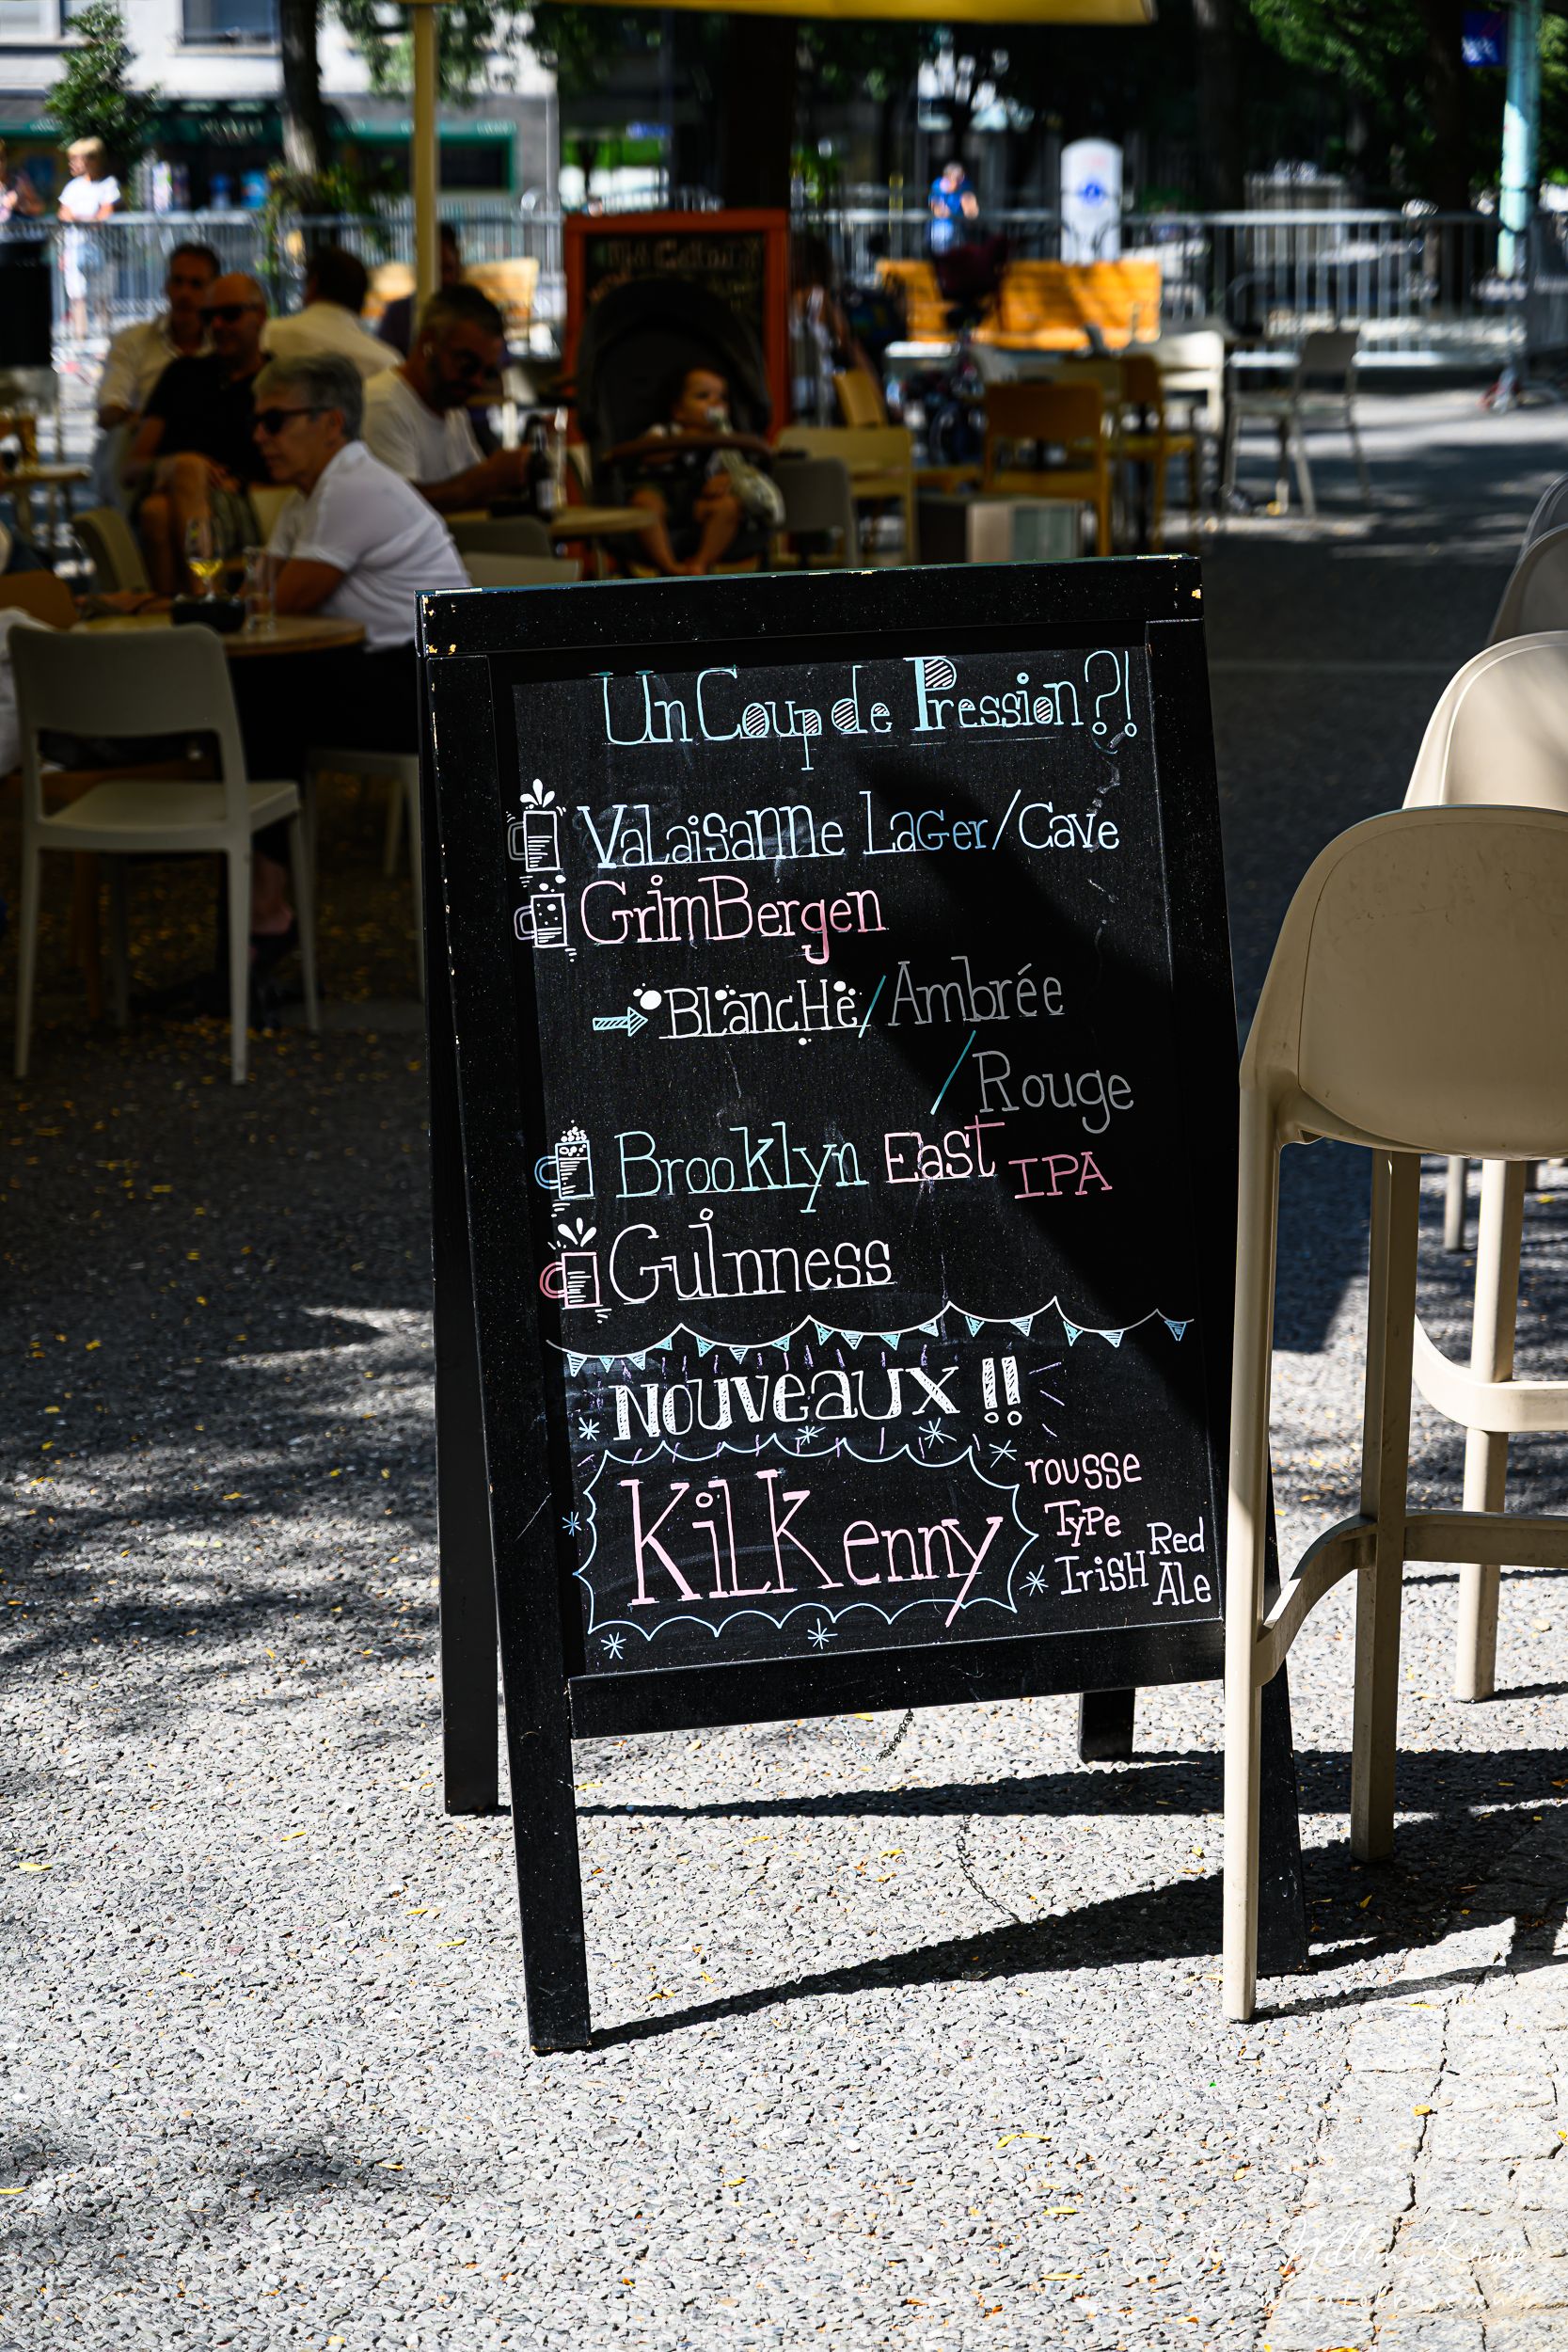 Un Coup de Pression?!
Valaisanne Lager/Cave
GrimBergen
Blanche/Ambrée
/Rouge
Brooklyn East IPA
Guinness
Nouveaux !!
Kilkenny
rousse
Type
Irish Red Ale